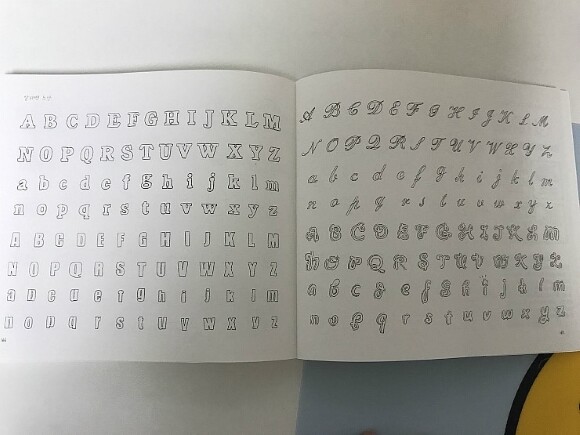 A B C D E F G H I J K L M
N O P Q R S T U V W X Y Z
a b c d e f g h i j k l m
n o p q r s t u v w x y z
A B C D E F G H I J K L M
N O P Q R S T U V W X Y Z
a b c d e f g h i j k l m
n o p q r s t u v w x y z
A B C D E F G H I J K L M
N O P Q R S T U V W X Y Z
a b c d e f g h i j k l m
n o p q r s t u v w x y z
A B C D E F G H I J K L M
N O P Q R S T U V W X Y Z
a b c d e f g h i j k l m
n o p q r s t u v w x y z